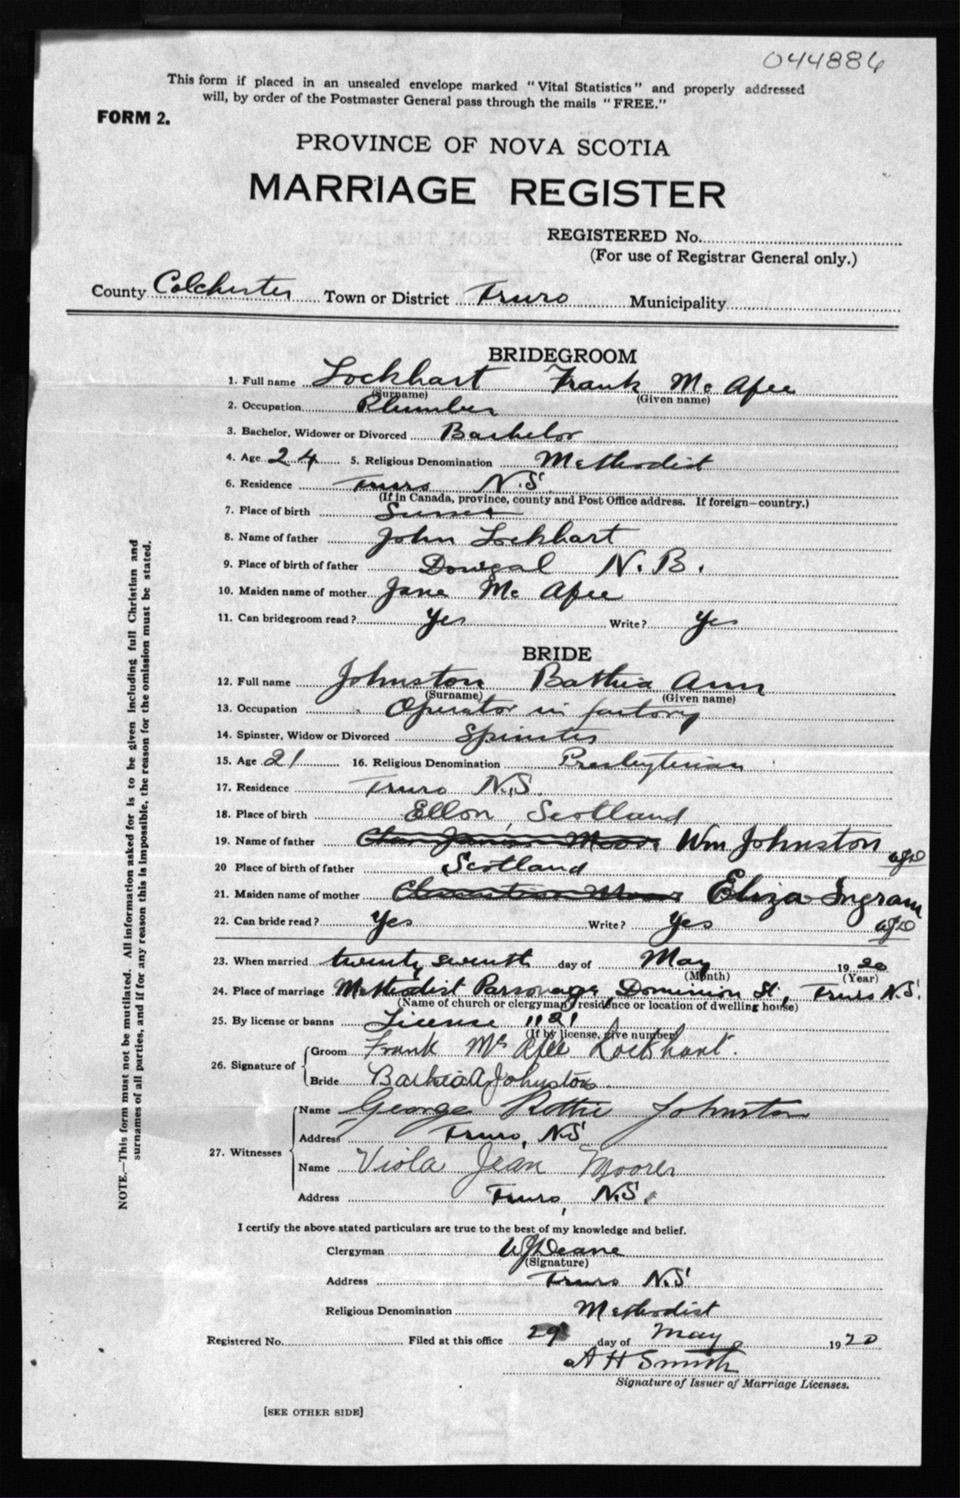 044886
This form if placed in an unsealed envelope marked "Vital Statistics" and properly addressed
will, by order of the Postmaster General pass through the mails "FREE."
FORM 2.
PROVINCE OF NOVA SCOTIA
MARRIAGE REGISTER
REGISTERED No.
(For use of Registrar General only.)
County Colchester Town or District Truro Municipality
BRIDEGROOM
1. Full name Lockhart Frank Mc Afee
(Surname) (Given name)
2. Occupation Plumber
3. Bachelor, Widower or Divorced Bachelor
4. Age 24 5. Religious Denomination Methodist
6. Residence Truro N.S
(If in Canada, province, county and Post Office address. If foreign—country.)
7. Place of birth Sussex
8. Name of father John Lockhart
9. Place of birth of father N.B.
10. Maiden name of mother Jane Mc Afee
11. Can bridegroom read? Yes Write? Yes
BRIDE
12. Full name Johnston Bathia Ann
(Surname) (Given name)
13. Occupation Operator in factory
14. Spinster, Widow or Divorced Spinster
15. Age 21 16. Religious Denomination Presbyterian
17. Residence Truro N.S.
18. Place of birth Ellon, Scotland
19. Name of father Wm Johnston
20 Place of birth of father Scotland
21. Maiden name of mother Eliza Ingram
22. Can bride read? Yes Write? Yes
23. When married twenty seventh day of May 1920
(Month) (Year)
24. Place of marriage Methodist Parsonage, Dominion St, Truro N.S.
(Name of church or clergyman's residence or location of dwelling house)
25. By license or banns License 1121
(If by license, give number)
26. Signature of
Groom Frank Mc Afee Lockhart.
Bride Bathia A Johnston
27. Witnesses
Name George Johnston
Address Truro, NS
Name Viola Jean
Address Truro, N.S.
I certify the above stated particulars are true to the best of my knowledge and belief.
Clergyman WJ Deane
(Signature)
Address Truro N.S
Religious Denomination Methodist
Registered No. Filed at this office 29 day of May 1920
A H Smith
Signature of Issuer of Marriage Licenses.
[SEE OTHER SIDE]
NOTE.—This form must not be mutilated. All information asked for is to be given including full Christian and
surnames of all parties, and if for any reason this is impossible, the reason for the omission must be stated.